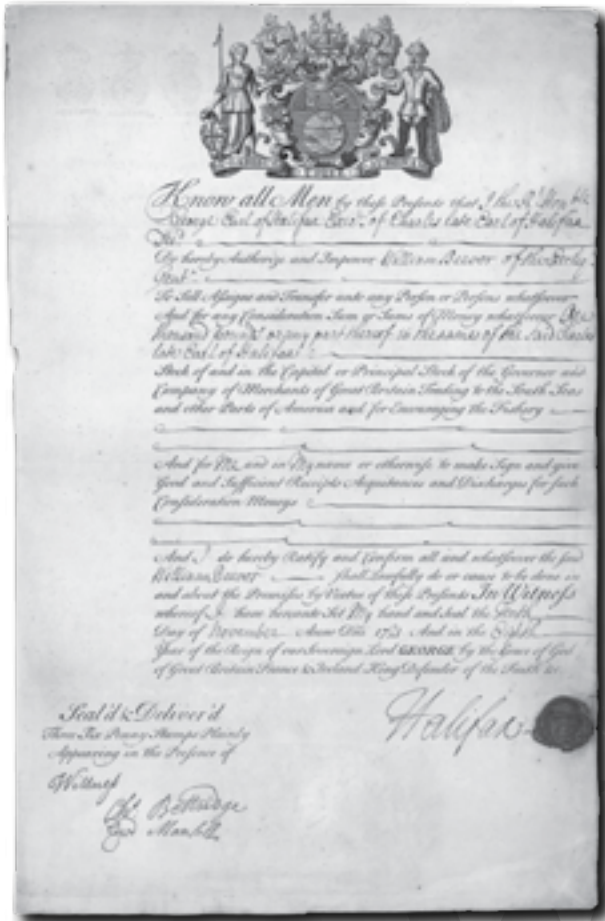 Know all Men by these Presents that I the Rt. Honble
George Earl of Halifax Exr. of Charles late Earl of Halifax
Do hereby Authorize and Impower William Beuvor of
Gent
To Sell Assigne and Transfer unto any Person or Persons whatsoever
And for any Consideration Sum or Sums of Money whatsoever One
thousand pounds or any part thereof in the name of the said Charles
late Earl of Halifax
Stock of and in the Capital or Principal Stock of the Governor and
Company of Merchants of Great Britain Trading to the South Seas
and other Parts of America and for Encouraging the Fishery
And for Me and in My name or otherwise to make Sign and give
Good and Sufficient Receipts Acquitances and Discharges for such
Consideration Moneys
And I do hereby Ratify and Confirm all and whatsoever the said
William Beuvor shall Lawfully do or cause to be done in
and about the Premises by Vertue of these Presents In Witness
whereof I have hereunto Set My hand and Seal the
Day of November Anno Dni 1721 And in the Eighth
Year of the Reign of our Sovereign Lord GEORGE by the Grace of God
of Great Britain France & Ireland King Defender of the Faith &c
Halifax
Seal'd & Deliver'd
Three Six Penny Stamps Plainly
Appearing in the Presence of
Witness
Betteridge
Mansell